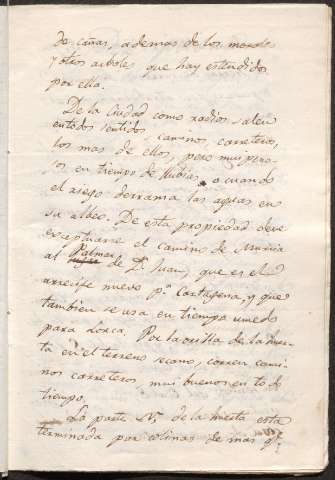 de cañas, ademas de los morales
y otros arboles que hay estendidos
por ella.
De la Ciudad como radios salen
en todos sentidos caminos, carreteros
los mas de ellos, pero mui peno-
sos en tiempo de llubias, o cuando
el riego derrama las aguas en
su albeo. De esta propiedad deve
esceptuarse el camino de Murcia
al Palmar de Dn Juan, que es el
arrecife nuevo pa Cartagena, y que
tambien se usa en tiempo umedo
para Lorca. Por la orilla de la huer-
ta en el terreno secano, corren cami-
nos carreteros, mui buenos en todo
tiempo.
La parte N. de la huerta está
terminada por colinas de mas qe